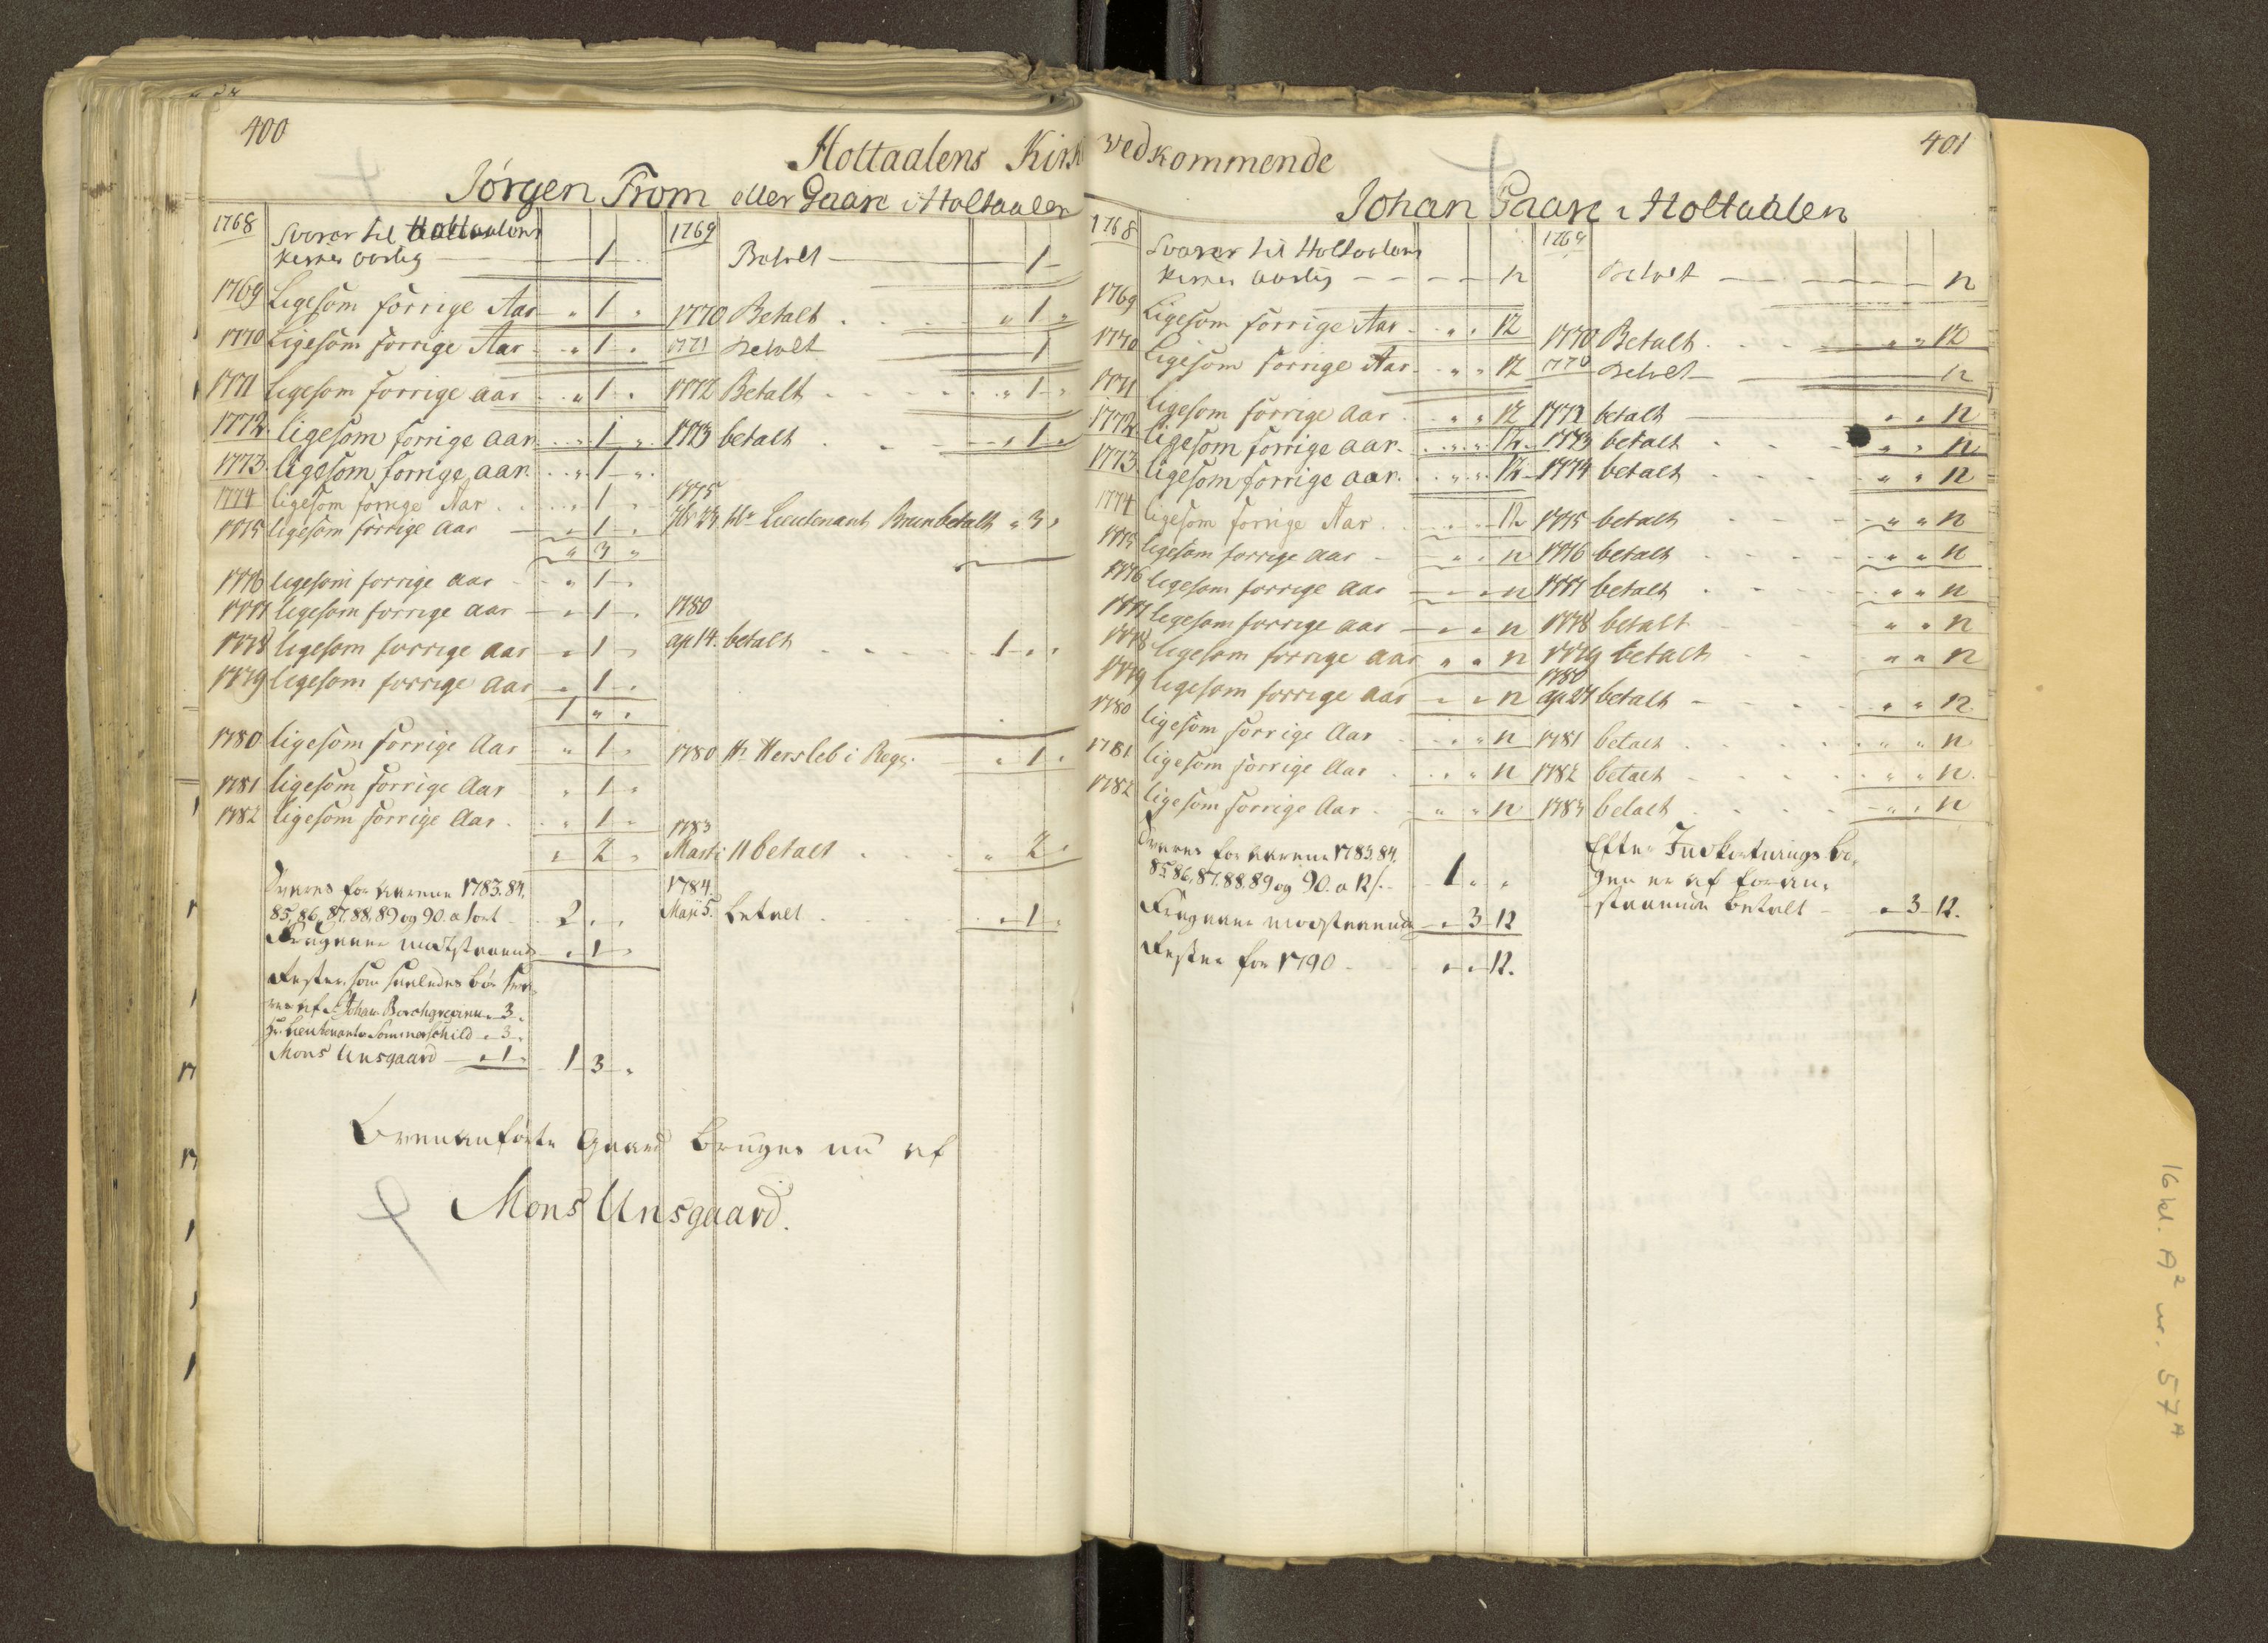 400
Holtaalens Kirk
Jørgen From eller Gaare i Holtaalen
1768 Svarer til Holtaalens
Kirke aarlig 1
1769 Ligesom forrige Aar " 1 "
1770 Ligesom forrige Aar " 1 "
1771 ligesom forrige aar " 1 "
1772. ligesom forrige aar " 1 "
1773. ligesom forrige aar. " 1 "
1774 ligesom forrige Aar 1 "
1775 ligesom forrige aar " 1 "
" 3 "
1776 ligesom forrige aar " 1 "
1777 ligesom forrige aar " 1 "
1778 ligesom forrige aar " 1 "
1779 ligesom forrige aar " 1 "
1 " "
1780 ligesom forrige Aar " 1 "
1781 ligesom forrige Aar " 1 "
1782 ligesom forrige Aar. " 1 "
" 2 "
Svares for Aarene 1783. 84.
85, 86, 87. 88. 89 og 90. a 1 ort 2 " "
Fragaaer modstaaende " 1 "
Rester, som saaledes bør sva-
res af Sr Johan Borchgrevink " 3 "
Hr. Lieutenant Sommerschild " 3 "
Mons Unsgaard " 1 " 1 3 "
1769 Betalt 1
1770 Betalt " 1 "
1771 Betalt 1
1772 Betalt " 1 "
1773 betalt " 1 "
1775
Hr Lieutenant Brun betalt " 3 "
1780
ap 14. betalt 1 " "
1780 Hr Hersleb i Regs. " 1 "
1783
Marti 11 betalt " 2 "
1784.
Maji 5. betalt " 1 "
Ovenanførte Gaard bruges nu af
Mons Unsgaard.
401
vedkommende
Johan Gaare i Holtaalen
1768 Svarer til Holtaalens
Kirke aarlig 12
1769 Ligesom forrige Aar " " 12
1770 Ligesom forrige Aar " " 12
1771 ligesom forrige aar " " 12
1772. ligesom forrige aar. " " 12.
1773. ligesom forrige aar. " " 12
1774 ligesom forrige Aar 12
1775 ligesom forrige aar " " 12
1776 ligesom forrige aar " " 12
1777 ligesom forrige aar " " 12
1778 ligesom forrige aar " " 12
1779 ligesom forrige aar " " 12
1780 ligesom forrige Aar " " 12
1781 ligesom forrige Aar " " 12
1782 ligesom forrige Aar " " 12
Svares for Aarene 1783. 84.
85. 86. 87. 88. 89 og 90. a 12 s. 1 " "
Fragaaer modstaaende " 3 12
Rester for 1790 " " 12.
1769 Betalt 12
1770 Betalt " " 12
1770 Betalt 12
1772 betalt " " 12
1773 betalt " " 12
1774 betalt " " 12
1775 betalt " " 12
1776 betalt " " 12
1777 betalt " " 12
1778 betalt " " 12
1779 betalt " " 12
1780
ap 24 betalt " " 12.
1781 betalt " " 12
1782 betalt " " 12.
1783 betalt " " 12
Efter Indkræfnings bo-
gen er af foran-
staaende betalt " 3 12.
16 kl. A2 nr. 57A